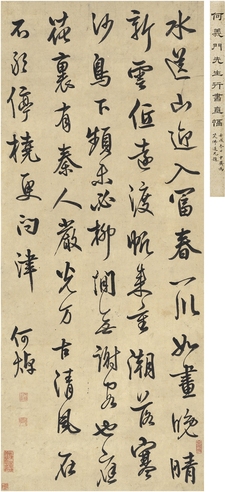 何義門先生行書直幅
水送山迎入富春一川如畫晚晴
新雲低遠渡帆來重潮落寒
沙鳥下頻未必柳間無謝客也應
花裏有秦人嚴光万古清風在
不敢停橈更問津
何焯